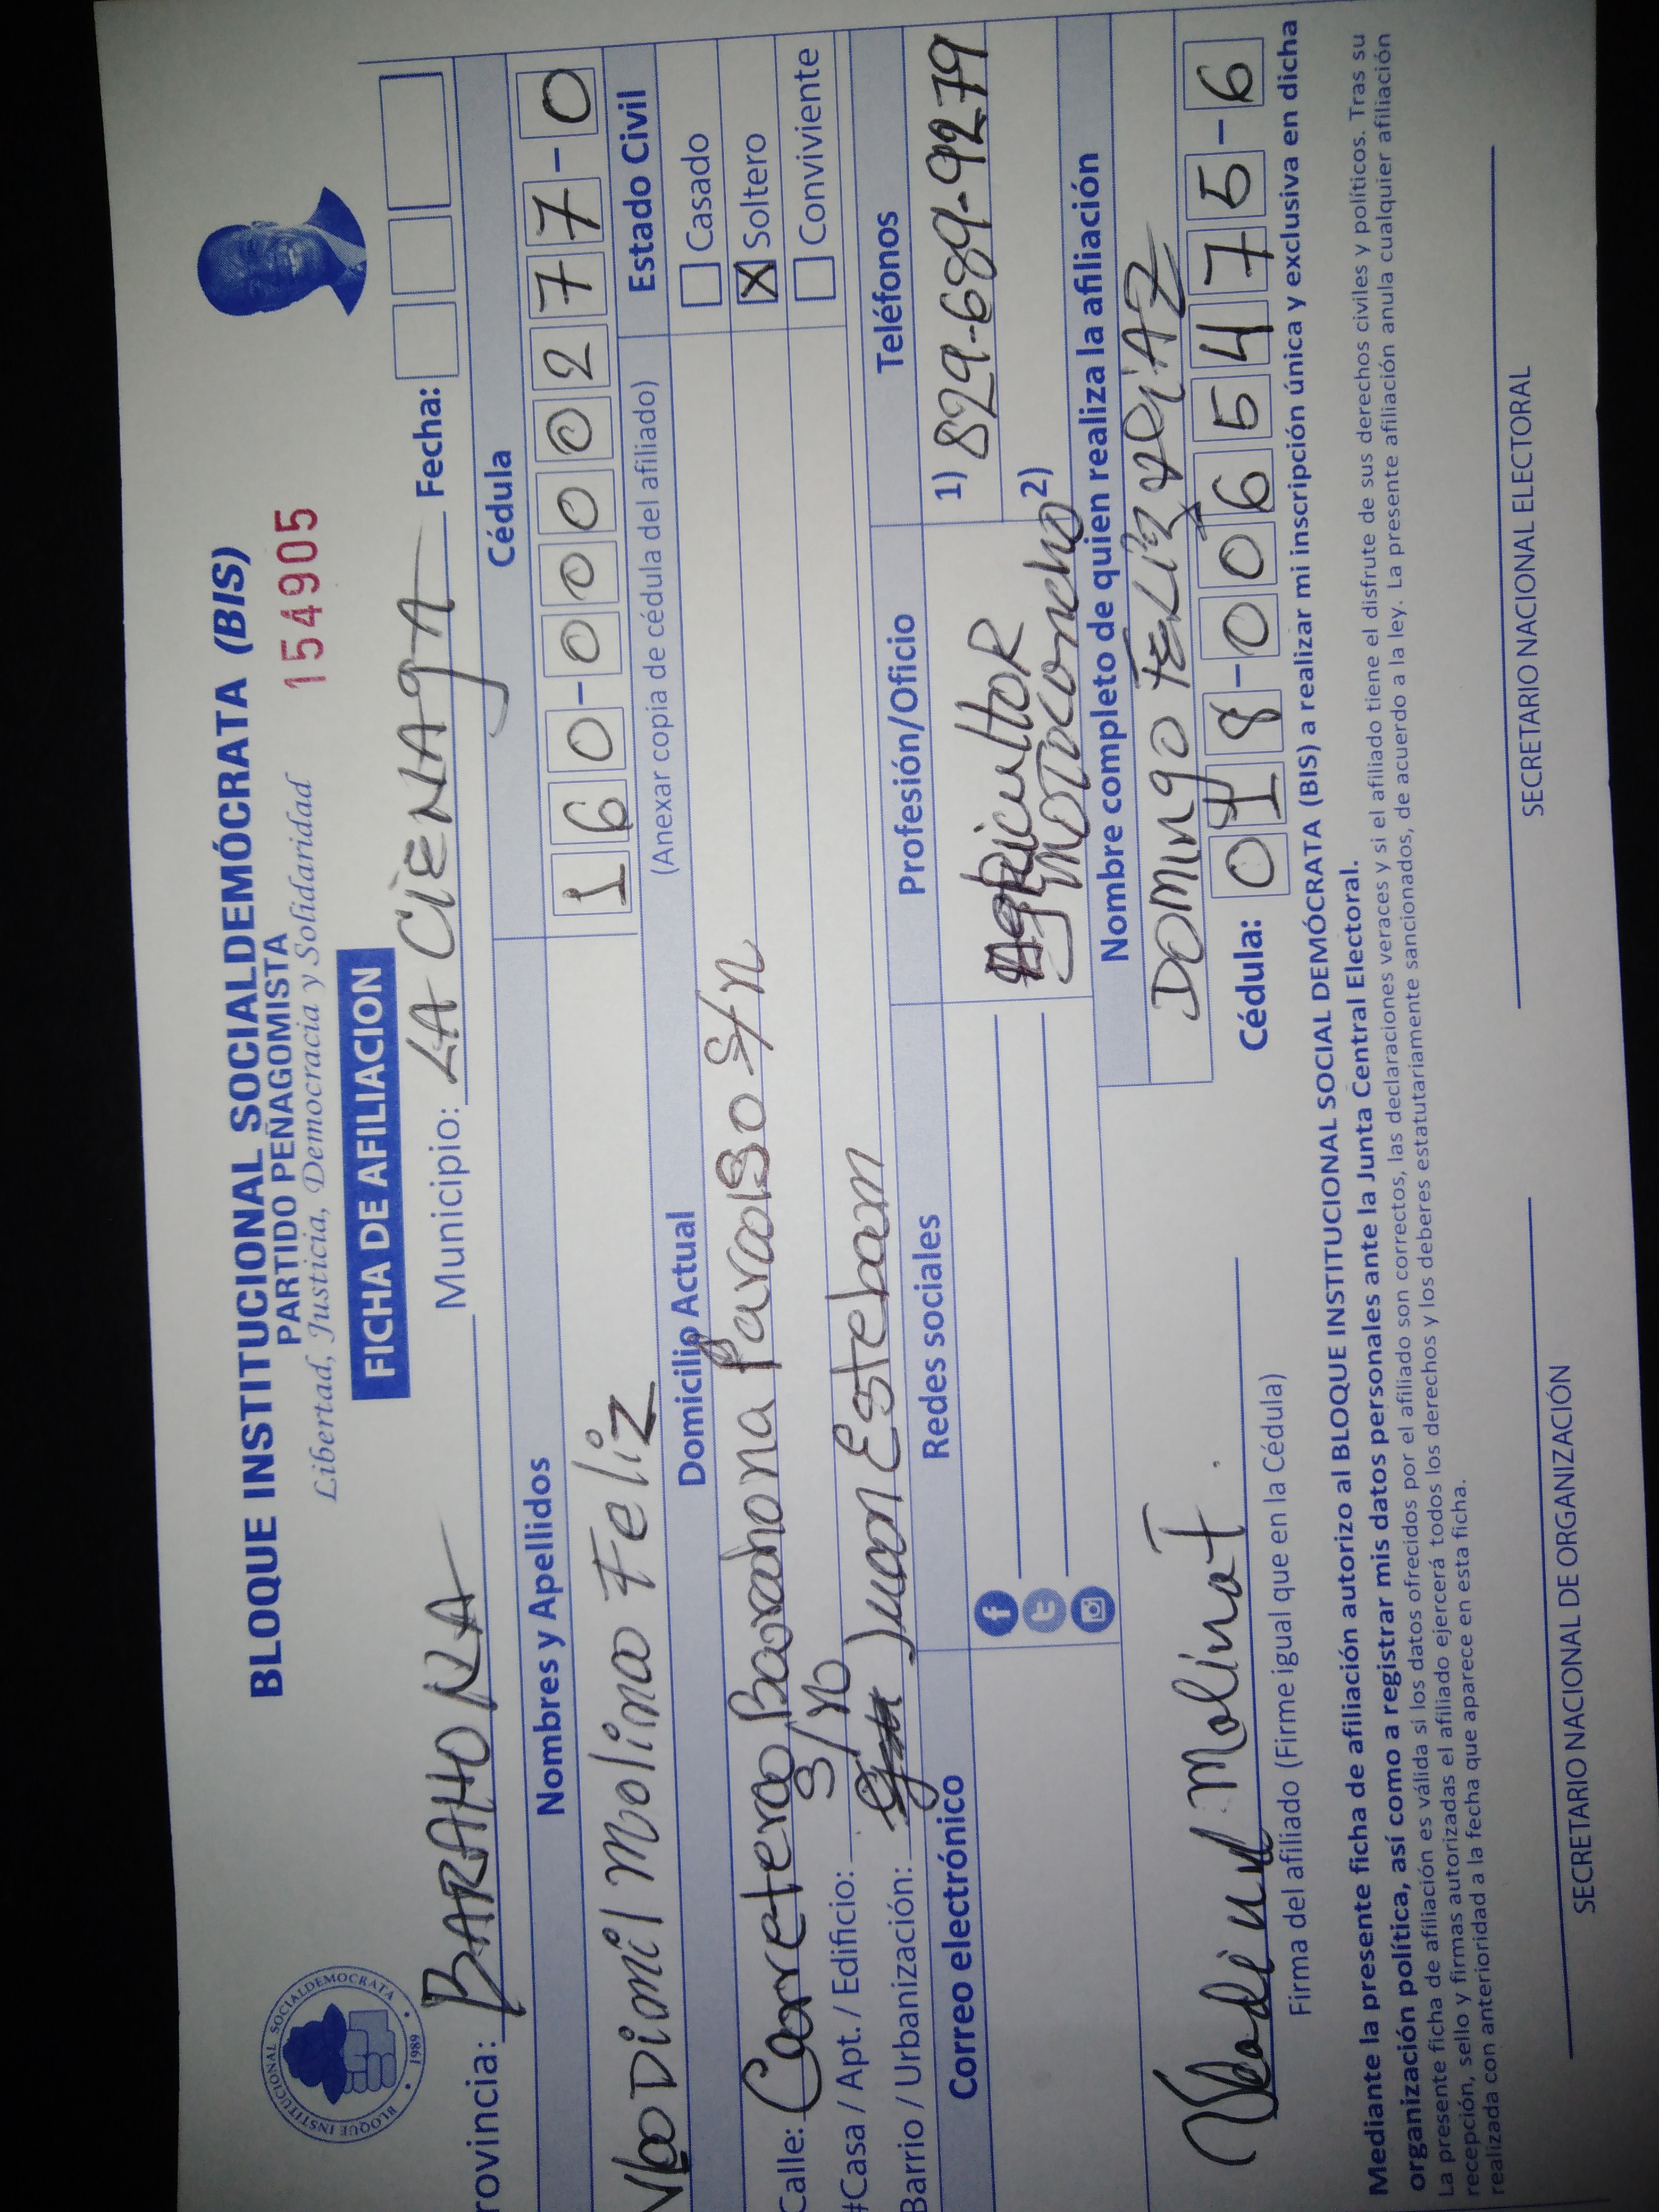 BLOQUE INSTITUCIONAL SOCIALDEMÓCRATA (BIS)
PARTIDO PEÑAGOMISTA
Libertad, Justicia, Democracia y Solidaridad
154905
BLOQUE INSTITUCIONAL SOCIALDEMOCRATA
1989
FICHA DE AFILIACION
rovincia: BARAHONA Municipio: LA CiENAgA Fecha:
Nombres y Apellidos Cédula
VlaDimil Molina Feliz 160-0000277-0
(Anexar copia de cédula del afiliado)
Domicilio Actual Estado Civil
Calle: Carretera Barahona Paraiso S/n
Casado
X Soltero
Conviviente
#Casa / Apt. / Edificio: S/N
Barrio / Urbanización: Juan Esteban
Correo electrónico Redes sociales Profesión/Oficio Teléfonos
AgRicultoR
motoconcho
1) 829-689-9279
2)
Nombre completo de quien realiza la afiliación
DOMINgO FELIZ
Cédula: 018-0065475-6
Molina F.
Firma del afiliado (Firme igual que en la Cédula)
Mediante la presente ficha de afiliación autorizo al BLOQUE INSTITUCIONAL SOCIAL DEMÓCRATA (BIS) a realizar mi inscripción única y exclusiva en dicha
organización política, así como a registrar mis datos personales ante la Junta Central Electoral.
La presente ficha de afiliación es válida si los datos ofrecidos por el afiliado son correctos, las declaraciones veraces y si el afiliado tiene el disfrute de sus derechos civiles y políticos. Tras su
recepción, sello y firmas autorizadas el afiliado ejercerá todos los derechos y los deberes estatutariamente sancionados, de acuerdo a la ley. La presente afiliación anula cualquier afiliación
realizada con anterioridad a la fecha que aparece en esta ficha.
SECRETARIO NACIONAL DE ORGANIZACIÓN SECRETARIO NACIONAL ELECTORAL